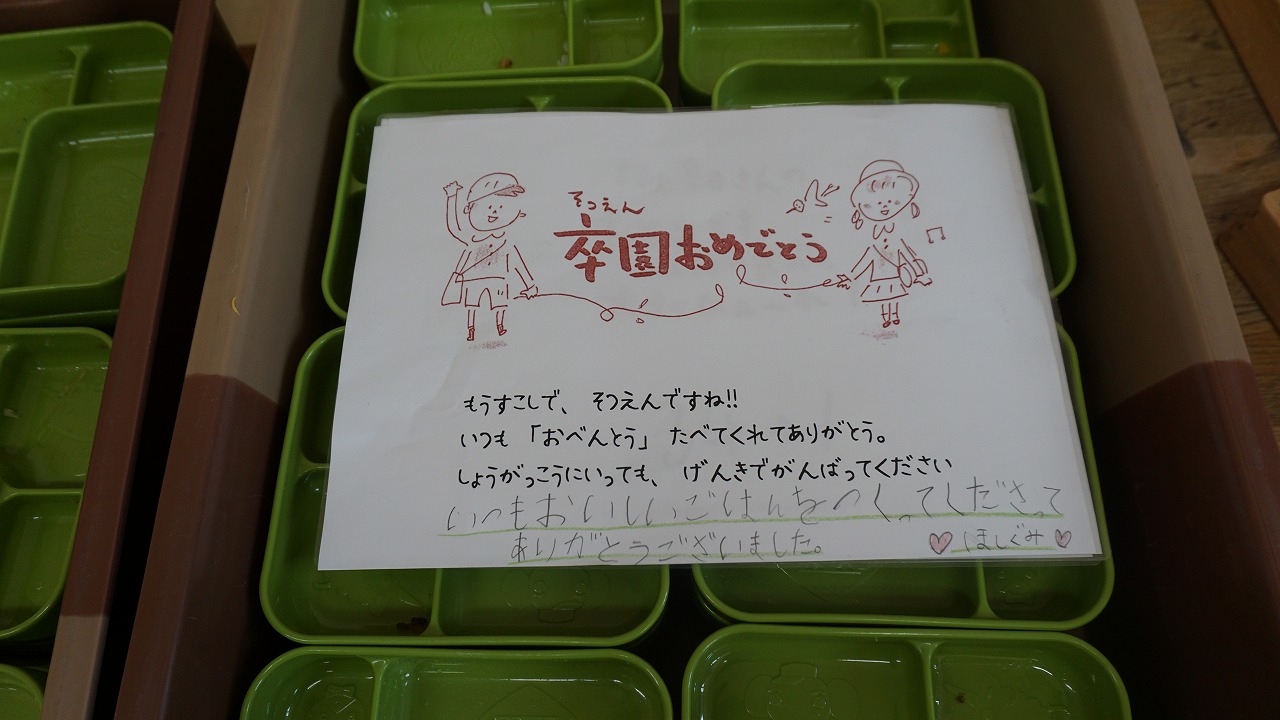 そつえん
卒園おめでとう
もうすこしで、 そつえんですね!!
いつも 「おべんとう」 たべてくれてありがとう。
しょうがっこうにいっても、 げんきでがんばってください
いつもおいしいごはんをつくってくださって
ありがとうございました。
♡ほしぐみ♡